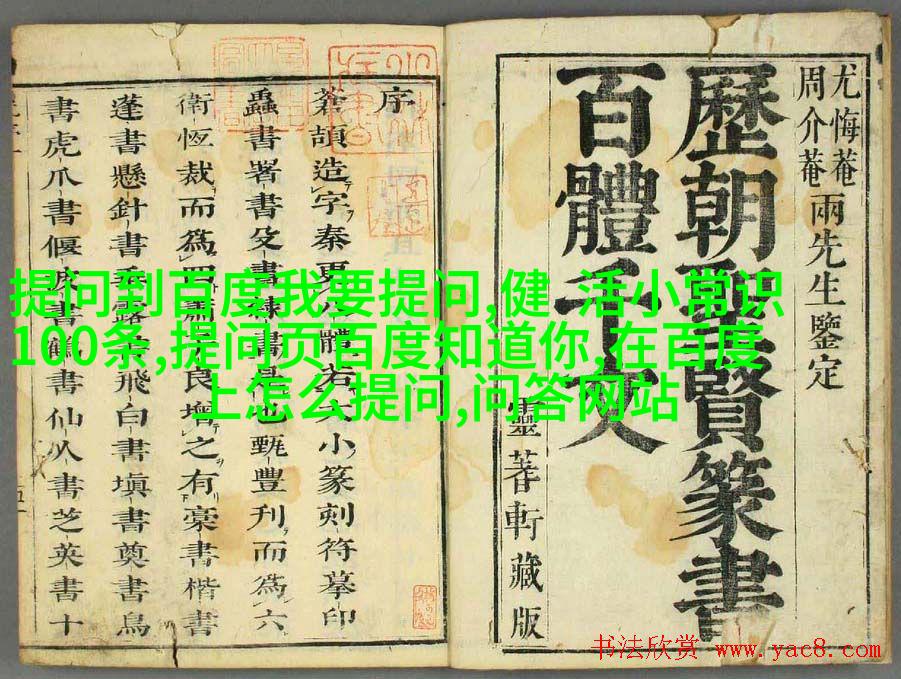 提问到百度我要提问,健 活小常识
100条,提问页百度知道你,在百度
上怎么提问,问答网站
尤悔菴
周介菴
兩先生鑒定
歷朝聖賢篆書
百體千文
靈蓍軒藏版
序
蒼頡造字秦更體若大小篆刻符摹印
蟲書署書殳書隸書是也甄豐刊而為六
衛恆裁而為四蕭良增之有稾書楷書
蓬書懸針書垂露飛白書塡書奠書鳥
書虎爪書偃波書鶴書仙人書芝英書十
书法欣赏 www.yac8.com